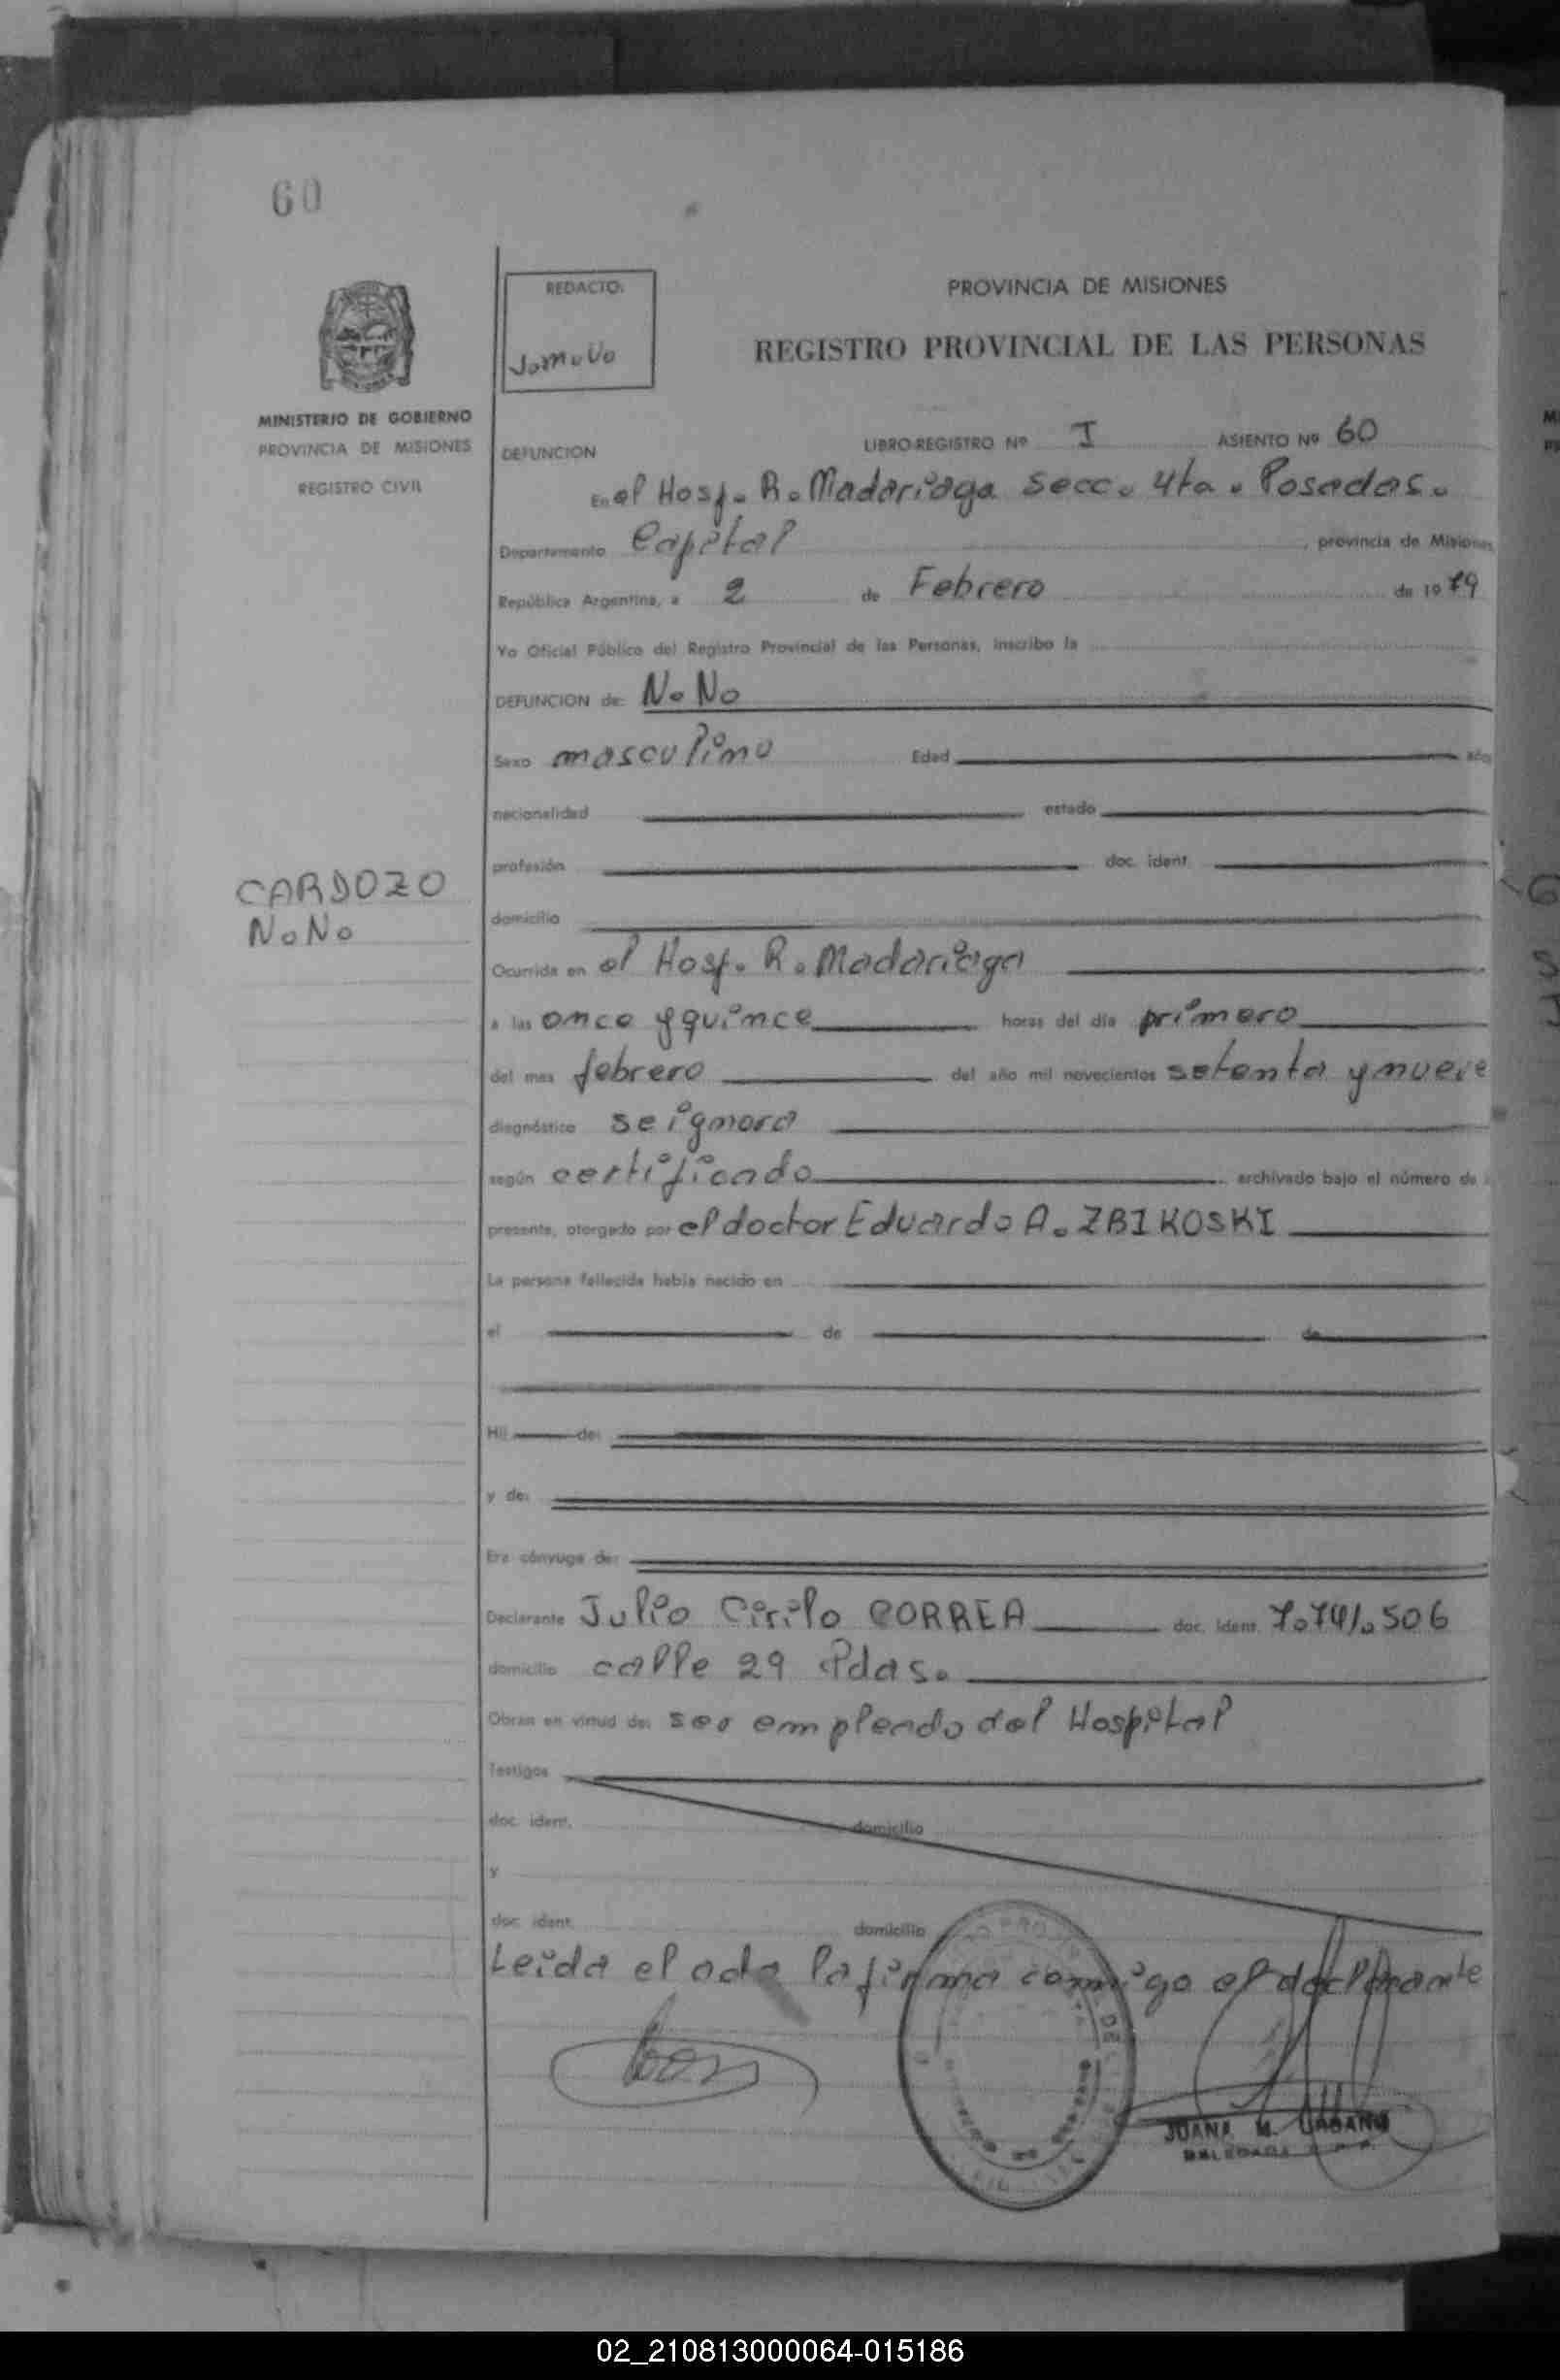 60
REDACTO:
J.M.U.
PROVINCIA DE MISIONES
REGISTRO PROVINCIAL DE LAS PERSONAS
MINISTERIO DE GOBIERNO
PROVINCIA DE MISIONES
REGISTRO CIVIL
DEFUNCION LIBRO-REGISTRO Nº I ASIENTO Nº 60
En el Hosp. R. Madariaga Secc. 4ta. Posadas.
Departamento Capital, provincia de Misiones
República Argentina, a 2 de Febrero de 1979
Yo Oficial Público del Registro Provincial de las Personas, inscribo la
DEFUNCION de: N.N.
Sexo masculino Edad años
nacionalidad estado
profesión doc. ident.
CARDOZO
N.N.
domicilio
Ocurrida en el Hosp. R. Madariaga
a las once y quince horas del día primero
del mes febrero del año mil novecientos setenta y nueve
diagnóstico se ignora
según certificado archivado bajo el número de
presente, otorgado por el doctor Eduardo A. ZBIKOSKI
La persona fallecida había nacido en
el de de
Hij de:
y de:
Era cónyuge de:
Declarante Julio Cirilo CORREA doc. ident. 7.741.506
domicilio calle 29 Pdas.
Obran en virtud de: ser empleado del Hospital
Testigos
doc. ident. domicilio
y
doc. ident. domicilio
Leida el acta la firma conmigo el declarante
JUANA M. URBANO
DELEGADA
02_210813000064-015186